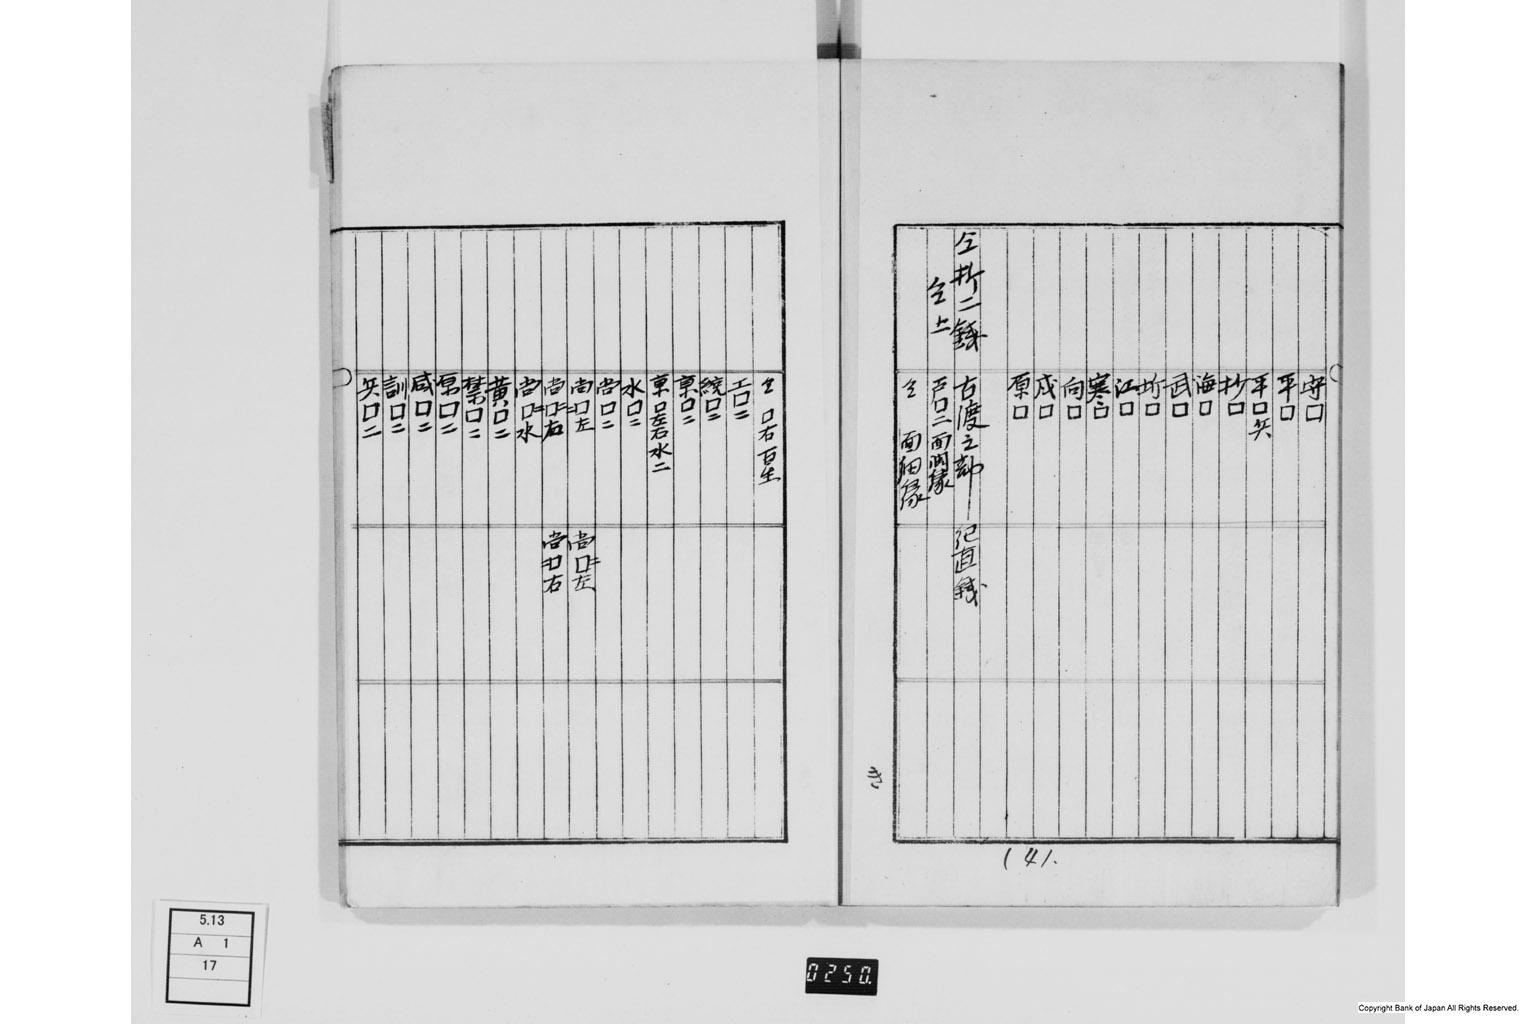 守口
平口
平口矢
抄口
海口
武口
圻口
江口
寒口
向口
成口
原口
仝折二錢 古渡之部 記直錢
仝上 戸口二面濶縁
仝 面細縁
仝 口右
工口二
繞口二
東口二
東口左右水二
水口二
尚口二
尚口二左 尚口二左
尚口二右 尚口二右
尚口二水
黄口二
禁口二
原口二
咸口二
訓口二
矢口二
(4).
5.13
A 1
17
0250.
Copyright Bank of Japan All Rights Reserved.